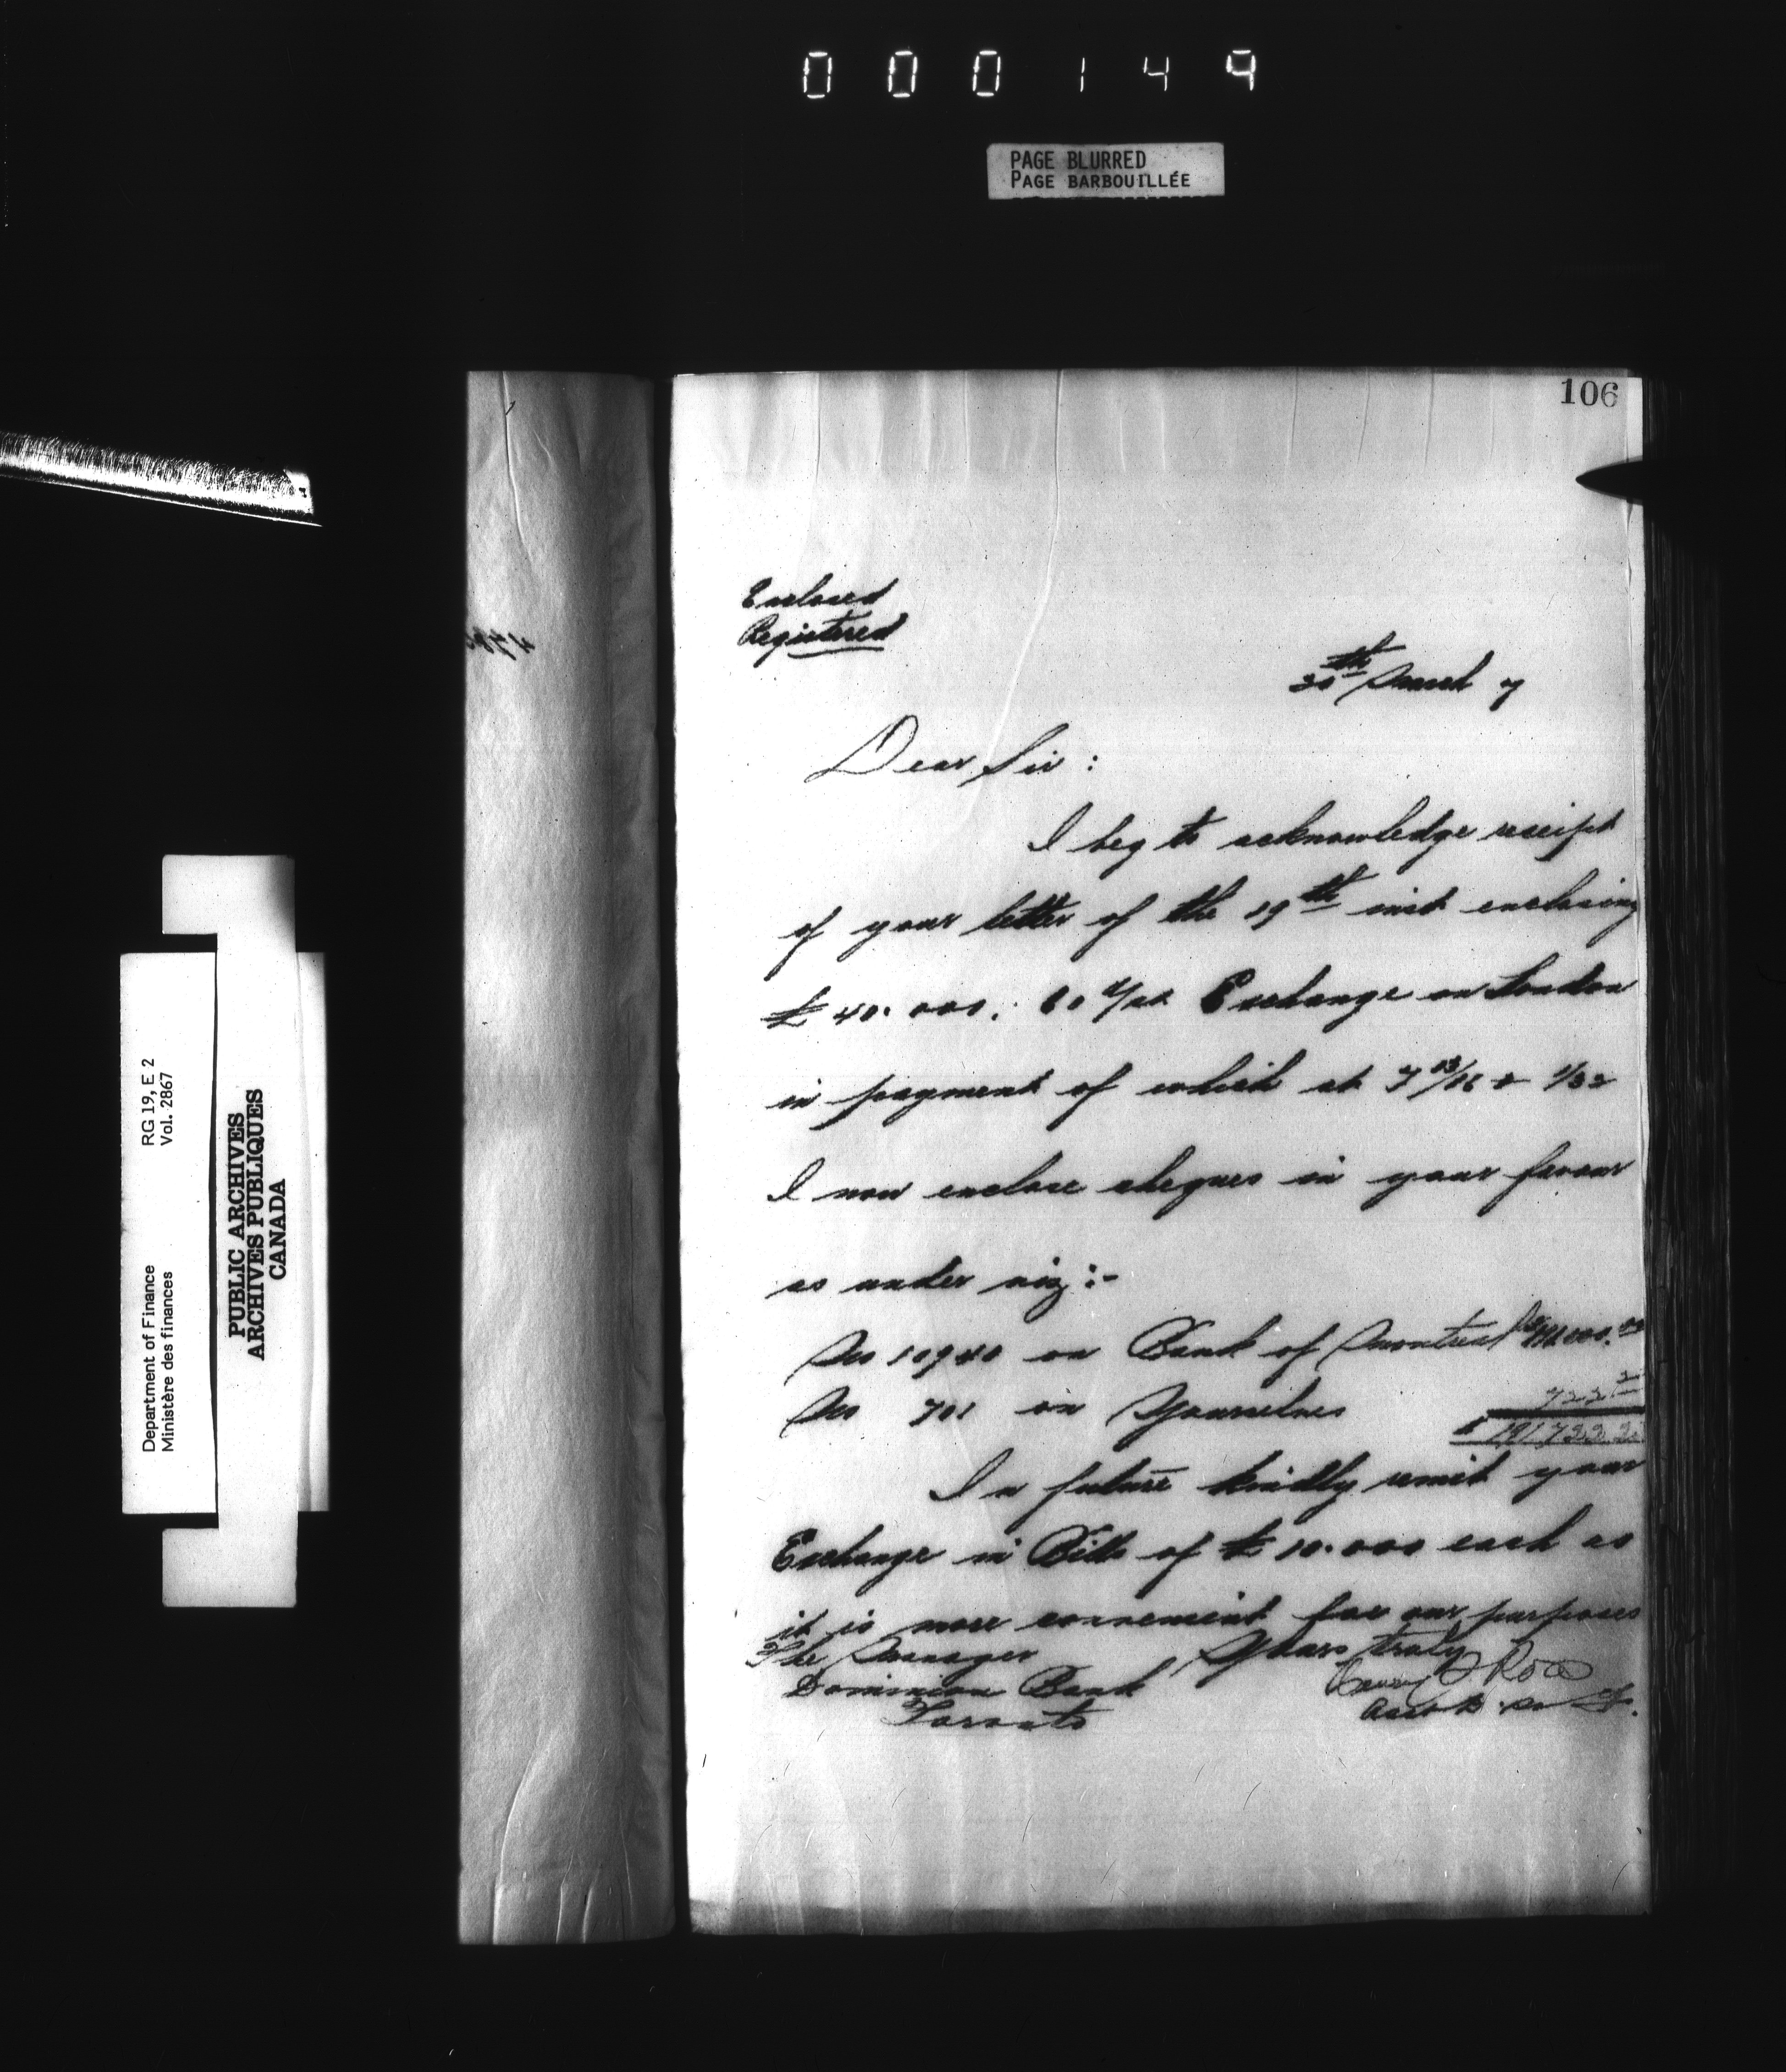 000149
PAGE BLURRED
PAGE BARBOUILLÉE
106
Enclosed
Registered
30th March 7
Dear Sir:
I beg to acknowledge receipt
of your letter of the 19th inst enclosing
£ 40.000. 60 d/st Exchange on London
in payment of which at 7 13/16 & 1/32
I now enclose cheques in your favour
as under viz:-
No 10940 on Bank of Montreal for $191.000.00
No 701 on Yourselves 722 22
$ 191,722 22
In future kindly remit your
Exchange in Bills of £ 10.000 each as
it is more convenient for our purposes
The Manager Yours truly
Dominion Bank
Toronto
RG 19, E 2
Vol. 2867
Department of Finance
Ministère des finances
PUBLIC ARCHIVES
ARCHIVES PUBLIQUES
CANADA